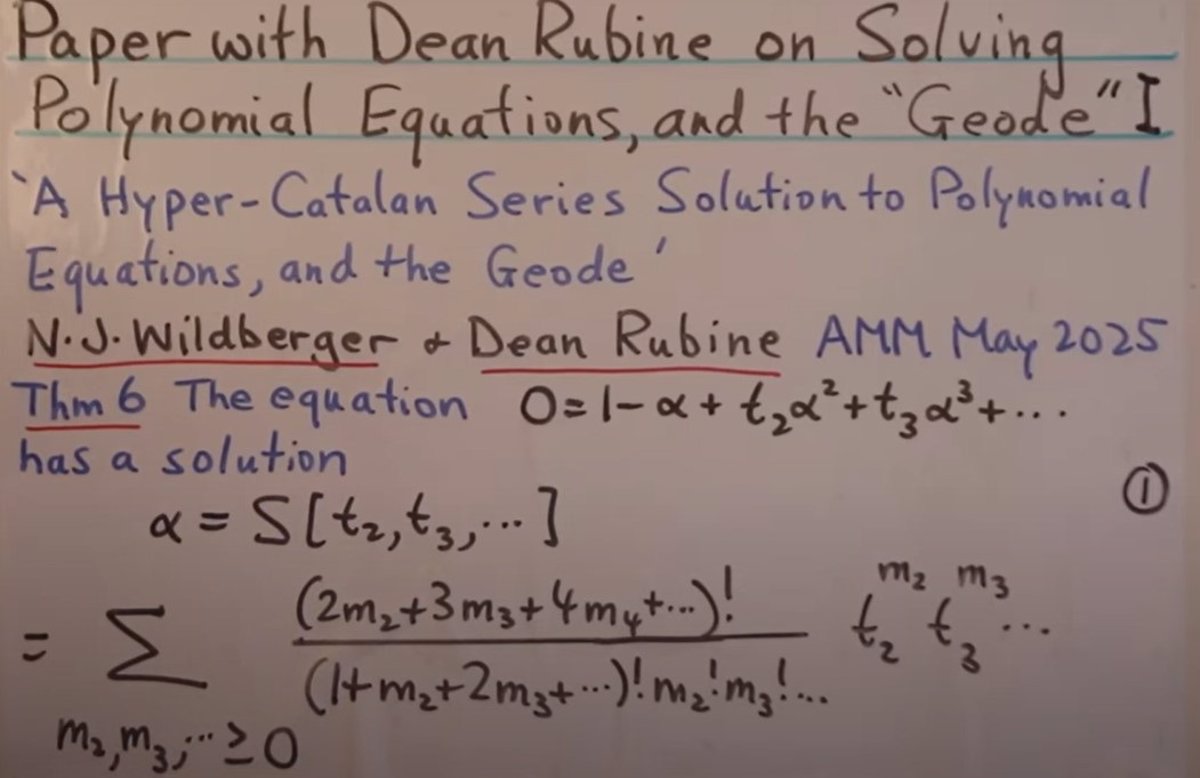 Paper with Dean Rubine on Solving
Polynomial Equations, and the "Geode" I
'A Hyper-Catalan Series Solution to Polynomial
Equations, and the Geode'
N.J. Wildberger & Dean Rubine AMM May 2025
Thm 6 The equation 0=1-α+t₂α²+t₃α³+...
has a solution
①
α = S[t₂,t₃,...]
= Σ (2m₂+3m₃+4m₄+...)! / (1+m₂+2m₃+...)!m₂!m₃!... t₂^m₂ t₃^m₃ ...
m₂,m₃,... ≥0